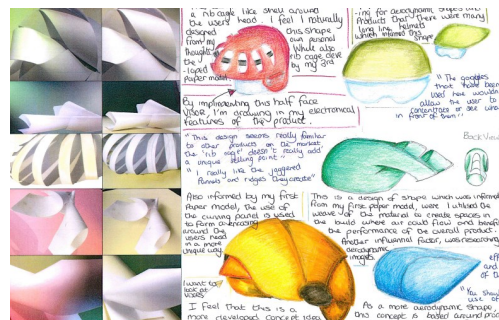 a rib cage like shell around
the users head. I feel I naturally
designed this shape
from my own personal
thoughts. While also
the rib cage deve
-loped by my 3rd
paper model.
By implimenting this half face
visor, I'm drawing in my electronical
features of the product.
"This design seems really familiar
to other products on the market
the 'rib cage' doesn't really add
a unique selling point"
"I really like the jaggered
pannels and ridges they create"
Also informed by my first
Paper model, the use of
the curving panel is used
to form overlapping
around the
users head
in a more
unique way.
I want to
look at
visors
I feel that this is a
more developed concept idea
-ing for aerodynamic shapes
Products that there were many
long line helmets
which informed this
shape
"The goggles
that have been
used here wouldn't
allow the user to
concentrate or see what
in front of them"
Back View
This is a design of shape which was informed
from my first paper model, were I utilised the
weave of the material to create spaces in
the build where air could flow and
the performance of the overall product.
Another influencial factor, was researching
aerodynamic
images.
eff
and
of th
"You shou
use of
As a more aerodynamic shape,
this concept is based around